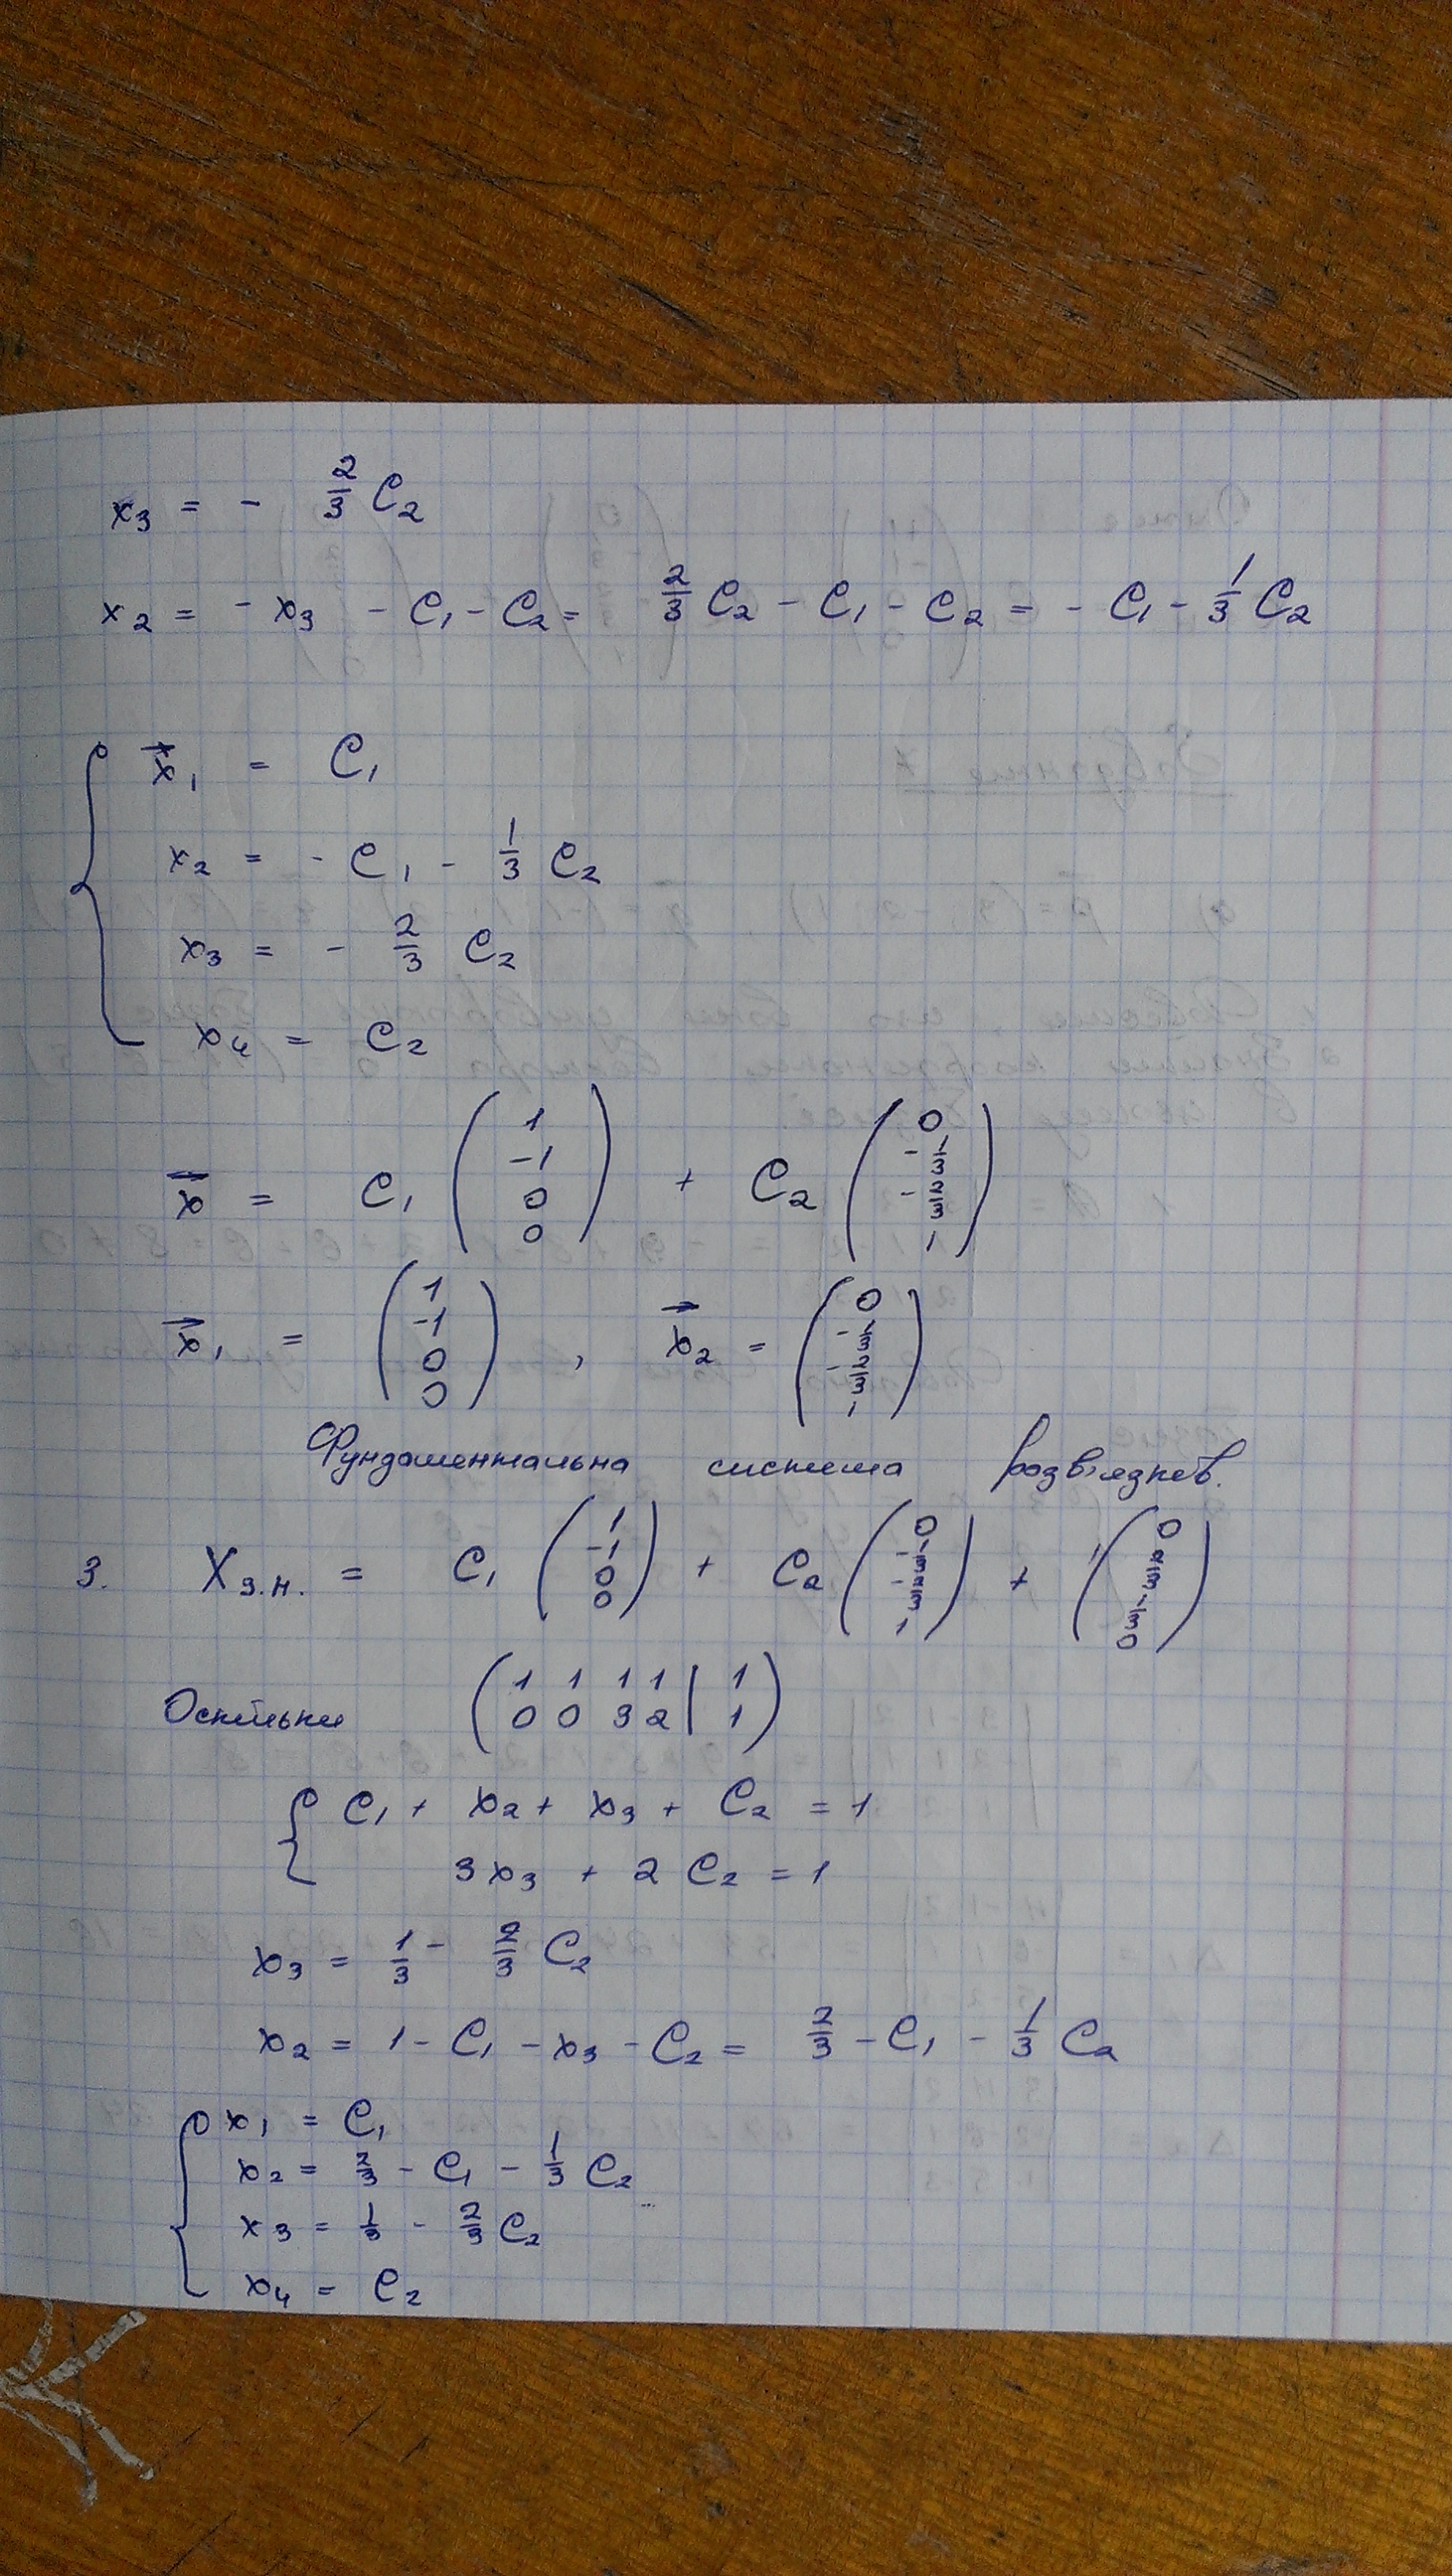 x₃ = - 2/3 C₂
x₂ = - x₃ - C₁ - C₂ = 2/3 C₂ - C₁ - C₂ = - C₁ - 1/3 C₂
{ x⃗₁ = C₁
x₂ = - C₁ - 1/3 C₂
x₃ = - 2/3 C₂
x₄ = C₂
x⃗ = C₁ (1 -1 0 0) + C₂ (0 -1/3 -2/3 1)
x⃗₁ = (1 -1 0 0) , x⃗₂ = (0 -1/3 -2/3 1)
Фундаментальна система розв'язків.
3. X з.н. = C₁ (1 -1 0 0) + C₂ (0 -1/3 -2/3 1) + (0 2/3 1/3 0)
Оскільки (1 1 1 1 | 1
0 0 3 2 | 1)
{ C₁ + x₂ + x₃ + C₂ = 1
3x₃ + 2C₂ = 1
x₃ = 1/3 - 2/3 C₂
x₂ = 1 - C₁ - x₃ - C₂ = 2/3 - C₁ - 1/3 C₂
{ x₁ = C₁
x₂ = 2/3 - C₁ - 1/3 C₂
x₃ = 1/3 - 2/3 C₂
x₄ = C₂